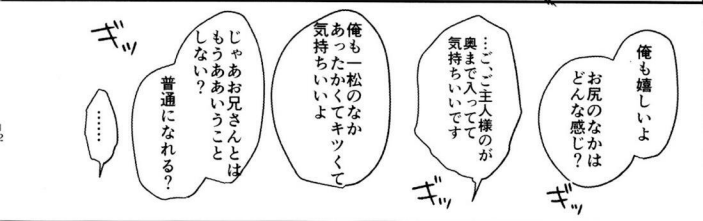 俺も嬉しいよ
お尻のなかは
どんな感じ？
ギッ
…ご、ご主人様のが
奥まで入ってて
気持ちいいです
ギッ
俺も一松のなか
あったかくてキツくて
気持ちいいよ
じゃあお兄さんとは
もうああいうこと
しない？
普通になれる？
ギッ
……